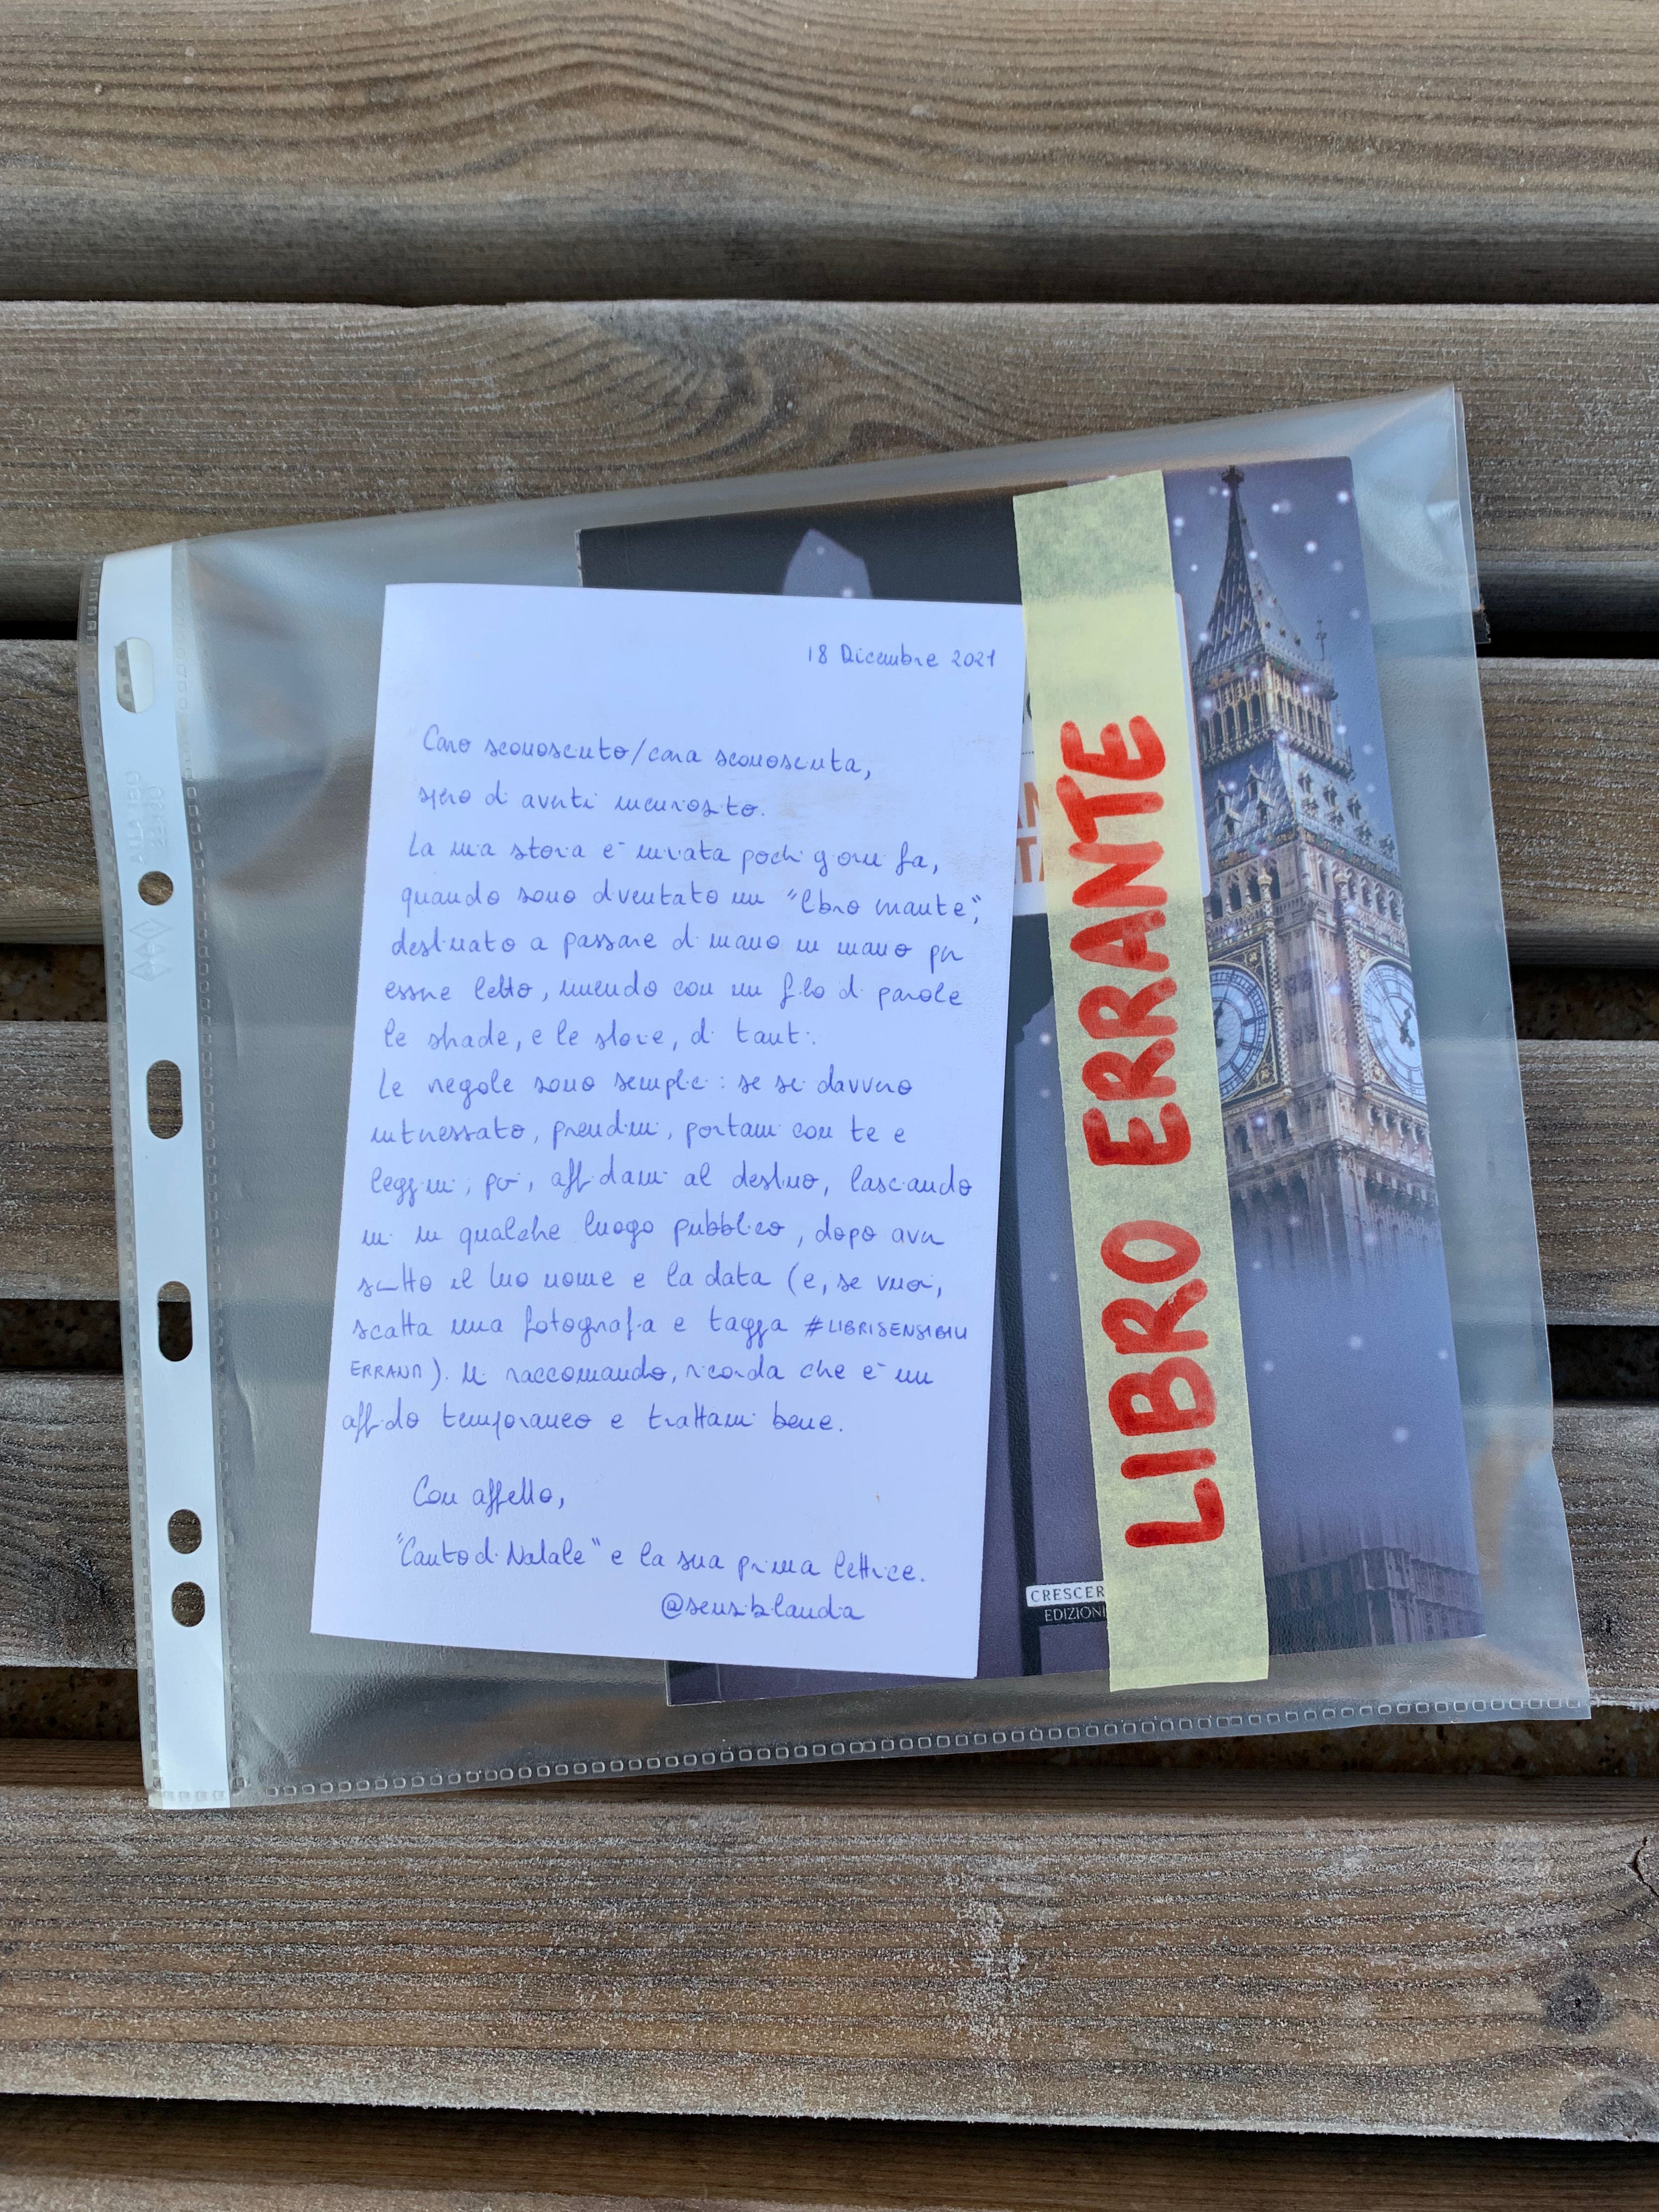 18 Dicembre 2021
Caro sconosciuto/cara sconosciuta,
spero di averti incuriosito.
La mia storia è iniziata pochi giorni fa,
quando sono diventato un "libro errante",
destinato a passare di mano in mano per
essere letto, unendo con un filo di parole
le strade, e le storie, di tanti.
Le regole sono semplici: se sei davvero
interessato, prendimi, portami con te e
leggimi; poi, affidami al destino, lasciando
mi in qualche luogo pubblico, dopo aver
scritto il tuo nome e la data (e, se vuoi,
scatta una fotografia e tagga #LIBRISENSIBILI
ERRANTI). Mi raccomando, ricorda che è un
affido temporaneo e trattami bene.
Con affetto,
"Canto di Natale" e la sua prima lettrice.
@sensiblanda
LIBRO ERRANTE
CRESCER
EDIZIONI